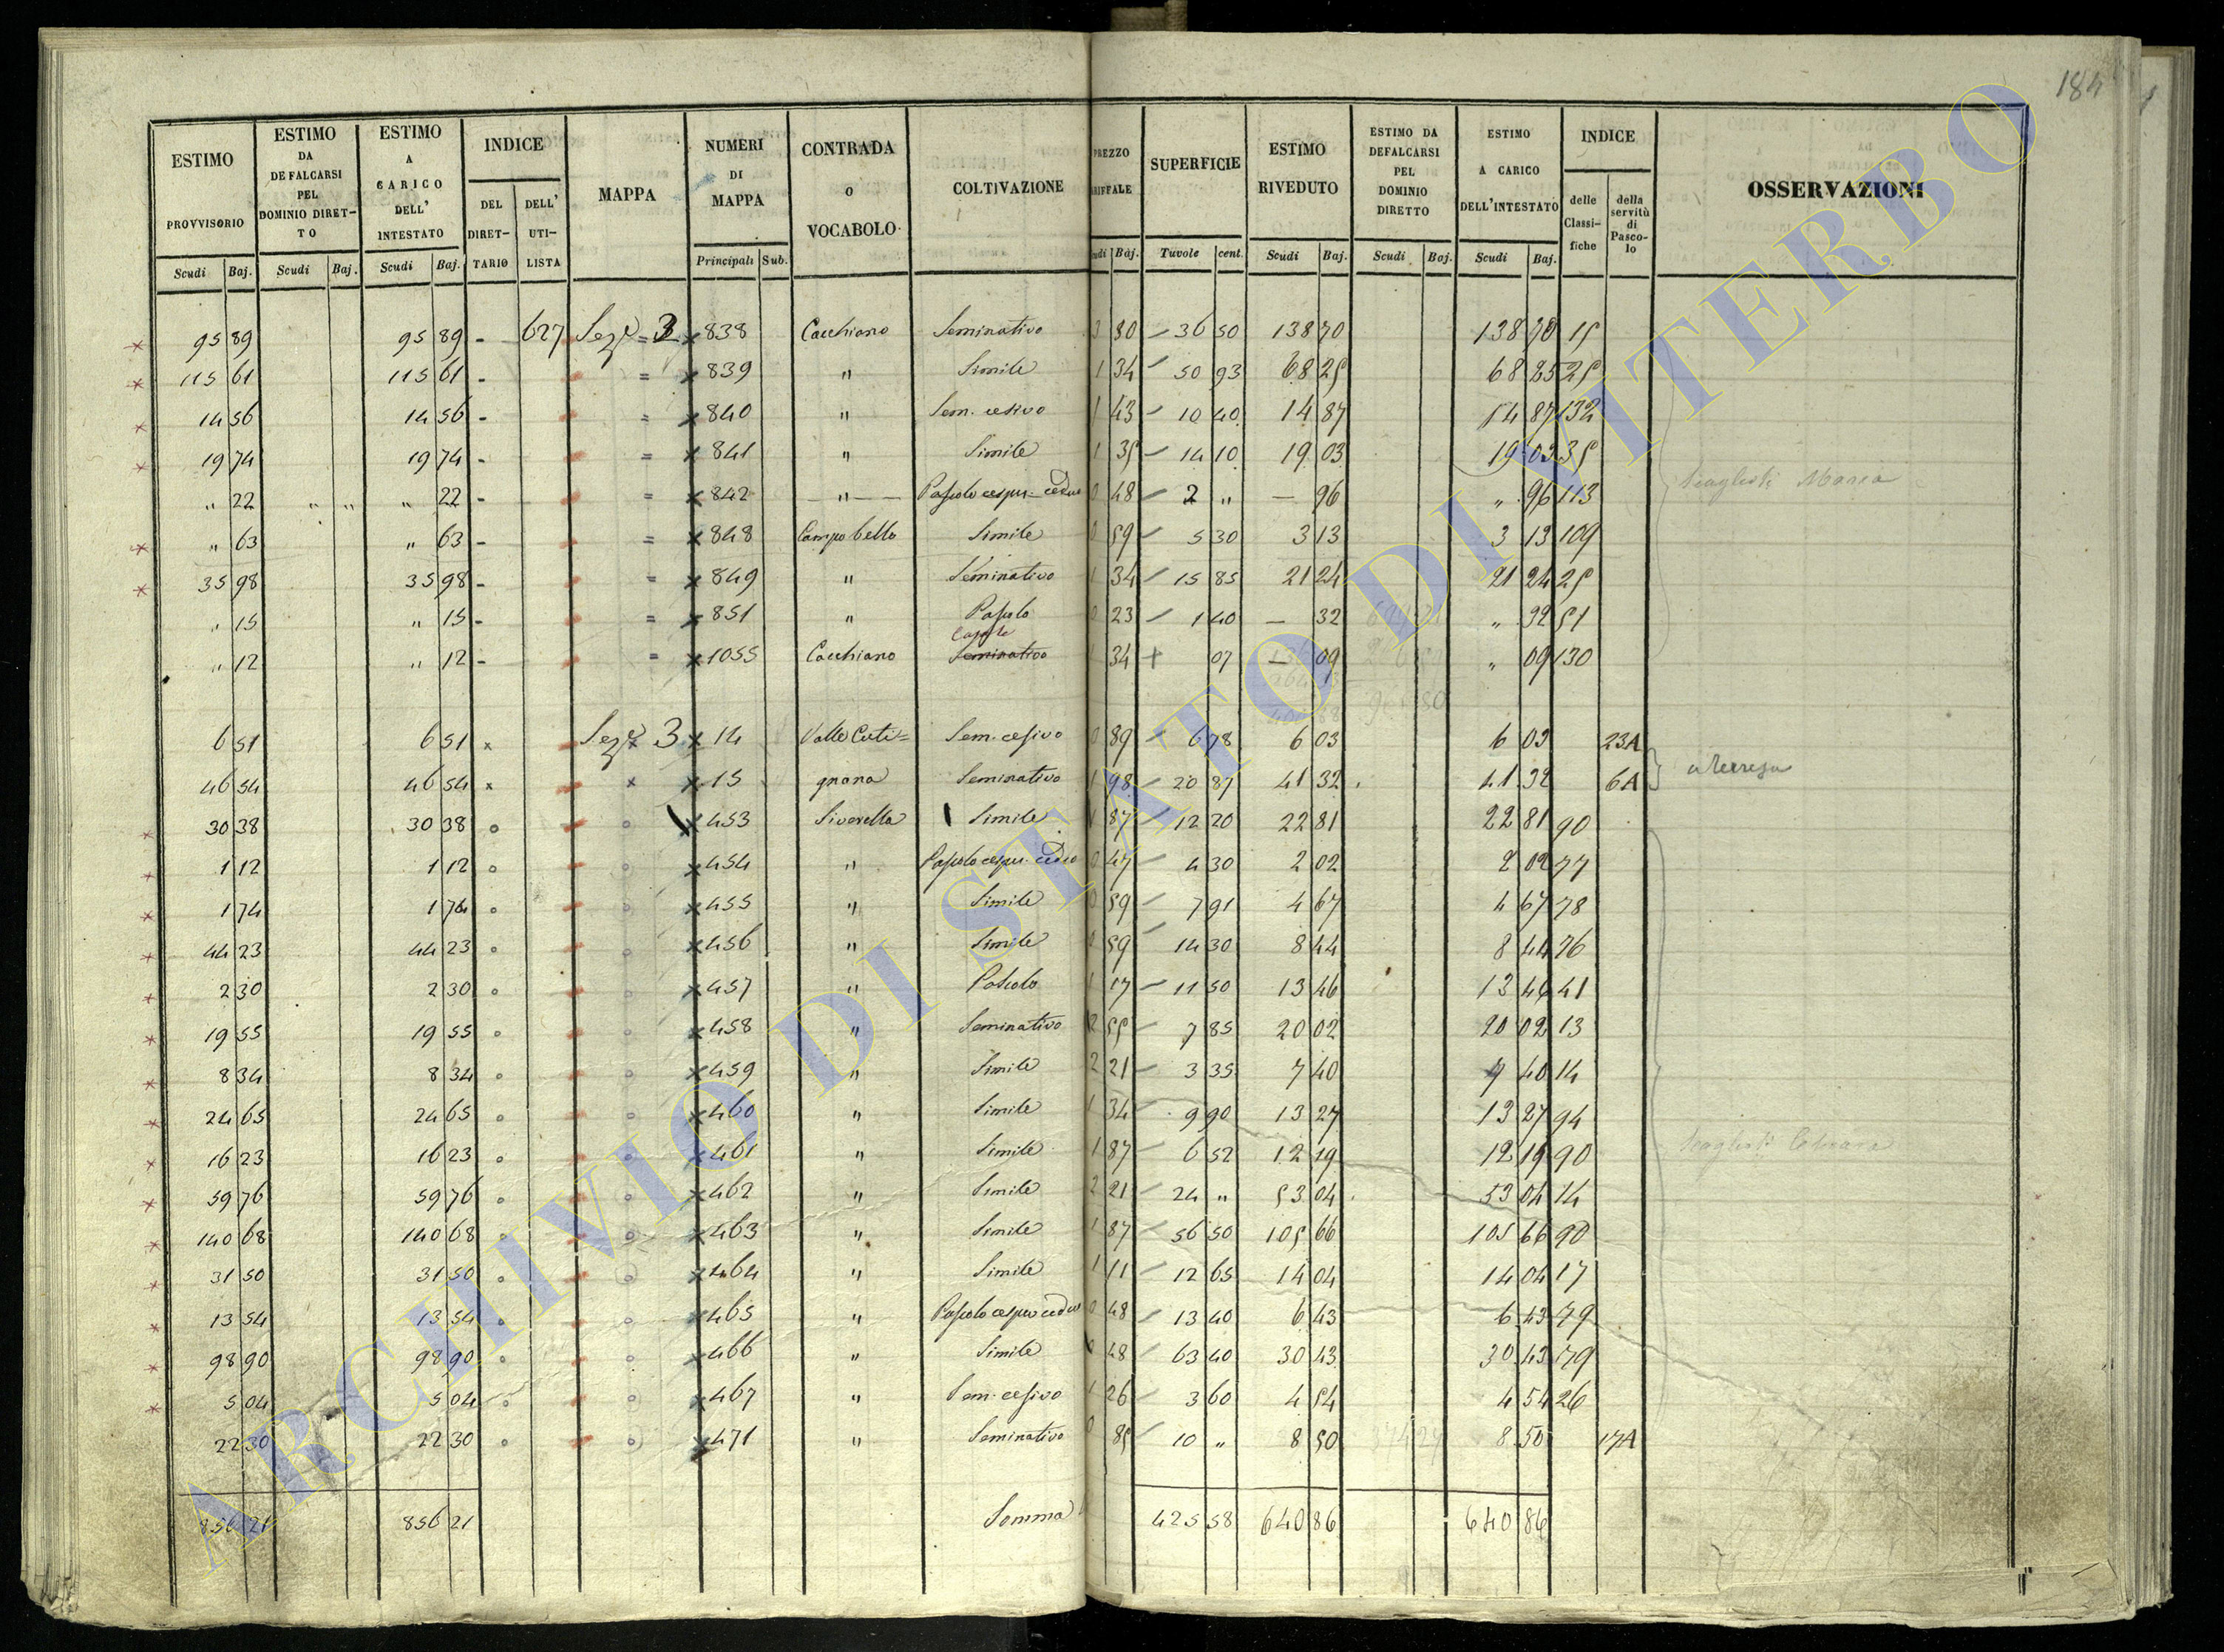 184
ESTIMO PROVVISORIO | ESTIMO DA DEFALCARSI PEL DOMINIO DIRETTO | ESTIMO A CARICO DELL' INTESTATO | INDICE DEL DIRETTARIO | DELL' UTILISTA | MAPPA | NUMERI DI MAPPA | CONTRADA O VOCABOLO | COLTIVAZIONE | PREZZO | SUPERFICIE | ESTIMO RIVEDUTO | ESTIMO DA DEFALCARSI PEL DOMINIO DIRETTO | ESTIMO A CARICO DELL'INTESTATO | INDICE delle Classifiche | della servitù di Pascolo | OSSERVAZIONI
Scudi | Baj. | Scudi | Baj. | Scudi | Baj. | Principali | Sub. | Baj. | Tavole | cent. | Scudi | Baj. | Scudi | Baj. | Scudi | Baj.
95 89 | 95 89 | - | 627 | Sez.e 3 | 838 | Cacchiano | Seminativo | 3 80 | 36 50 | 138 70 | 138 70 | 15
115 61 | 115 61 | - | = | 839 | " | Simile | 1 34 | 50 93 | 68 25 | 68 25 | 25
14 56 | 14 56 | - | = | 840 | " | Sem. cesivo | 1 43 | 10 40 | 14 87 | 14 87 | 132
19 74 | 19 74 | - | = | 841 | " | Simile | 1 35 | 14 10 | 19 03 | 19 03 | 35
" 22 | " " | " 22 | - | = | 842 | " | Pascolo cespu. ceduo | 0 48 | 2 " | - 96 | " 96 | 113
" 63 | " 63 | - | = | 848 | Campo bello | Simile | 0 59 | 5 30 | 3 13 | 3 13 | 109
35 98 | 35 98 | - | = | 849 | " | Seminativo | 1 34 | 15 85 | 21 24 | 21 24 | 25
" 15 | " 15 | - | = | 851 | " | Pascolo | 0 23 | 1 40 | - 32 | " 32 | 51
" 12 | " 12 | - | = | 1055 | Cacchiano | Seminativo | 1 34 | 07 | - 09 | " 09 | 130
6 51 | 6 51 | x | Sez.e 3 | 14 | Valle Cuti= | Sem. cesivo | 0 89 | 6 78 | 6 03 | 6 03 | 23A
46 54 | 46 54 | x | x | 15 | gnana | Seminativo | 1 98 | 20 87 | 41 32 | 41 32 | 6A
30 38 | 30 38 | o | o | 453 | Siverella | Simile | 1 87 | 12 20 | 22 81 | 22 81 | 90
1 12 | 1 12 | o | o | 454 | " | Pascolo cespu. ceduo | 0 47 | 4 30 | 2 02 | 2 02 | 77
1 74 | 1 74 | o | o | 455 | " | Simile | 0 59 | 7 91 | 4 67 | 4 67 | 78
44 23 | 44 23 | o | o | 456 | " | Simile | 0 59 | 14 30 | 8 44 | 8 44 | 76
2 30 | 2 30 | o | o | 457 | " | Pascolo | 1 17 | 11 50 | 13 46 | 13 46 | 41
19 55 | 19 55 | o | o | 458 | " | Seminativo | 2 55 | 7 85 | 20 02 | 20 02 | 13
8 34 | 8 34 | o | o | 459 | " | Simile | 2 21 | 3 35 | 7 40 | 7 40 | 14
24 65 | 24 65 | o | o | 460 | " | Simile | 1 34 | 9 90 | 13 27 | 13 27 | 94
16 23 | 16 23 | o | o | 461 | " | Simile | 1 87 | 6 52 | 12 19 | 12 19 | 90
59 76 | 59 76 | o | o | 462 | " | Simile | 2 21 | 24 " | 53 04 | 53 04 | 14
140 68 | 140 68 | o | o | 463 | " | Simile | 1 87 | 56 50 | 105 66 | 105 66 | 90
31 50 | 31 50 | o | o | 464 | " | Simile | 1 11 | 12 65 | 14 04 | 14 04 | 17
13 54 | 13 54 | o | o | 465 | " | Pascolo cespu ceduo | 0 48 | 13 40 | 6 43 | 6 43 | 79
98 90 | 98 90 | o | o | 466 | " | Simile | 0 48 | 63 40 | 30 43 | 30 43 | 79
5 04 | 5 04 | o | o | 467 | " | Sem. cesivo | 1 26 | 3 60 | 4 54 | 4 54 | 26
22 30 | 22 30 | o | o | 471 | " | Seminativo | 0 85 | 10 " | 8 50 | 8 50 | 17A
856 21 | 856 21 | Somma | 425 58 | 640 86 | 640 86
ARCHIVIO DI STATO DI VITERBO